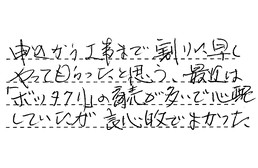 申込から工事まで割りに早く
やってもらったと思う、最近は
「ボッタクリ」の商売が多いで心配
していたが良心的でよかった